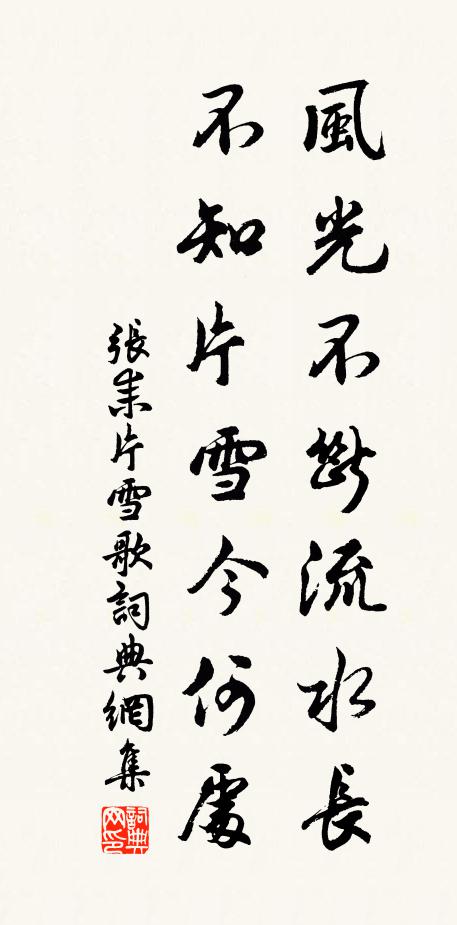 風光不斷流水長
不知片雪今何處
張耒片雪歌詞典網集
詞典网印